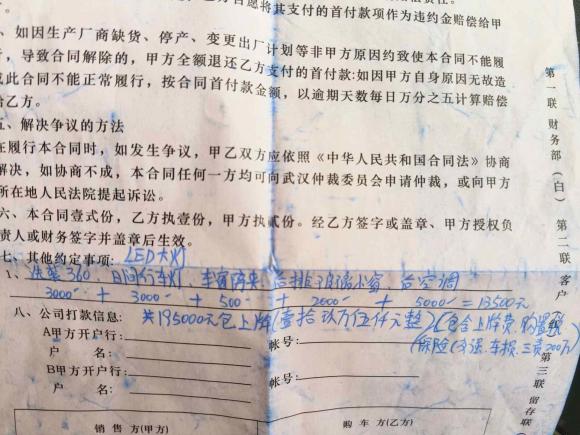 将其支付的首付款项作为违约金赔偿给甲
、如因生产厂商缺货、停产、变更出厂计划等非甲方原因约致使本合同不能履
，导致合同解除的，甲方全额退还乙方支付的首付款:如因甲方自身原因无故造
此合同不能正常履行，按合同首付款金额，以逾期天数每日万分之五计算赔偿
给乙方。
五、解决争议的方法
在履行本合同时，如发生争议，甲乙双方应依照《中华人民共和国合同法》协商
解决，如协商不成，本合同任何一方均可向武汉仲裁委员会申请仲裁，或向甲方
所在地人民法院提起诉讼。
六、本合同壹式份，乙方执壹份，甲方执贰份。经乙方签字或盖章、甲方授权负
责人或财务签字并盖章后生效。
七、其他约定事项: LED大灯
1、 360、日间行车灯、 小窗、 空调
3000 + 3000 + 500 + 2000 + 5000 = 13500元
八、公司打款信息: 共195000元包上牌(壹拾玖万伍仟元整)(包含上牌费、购置税
A甲方开户行: 帐号:
保险(交强、车损、三责200万)
户 名:
B甲方开户行: 帐号:
户 名:
销 售 方(甲方) 购 车 方(乙方)
第一联 财务部(白) 第二联 客户 第三联 留存联